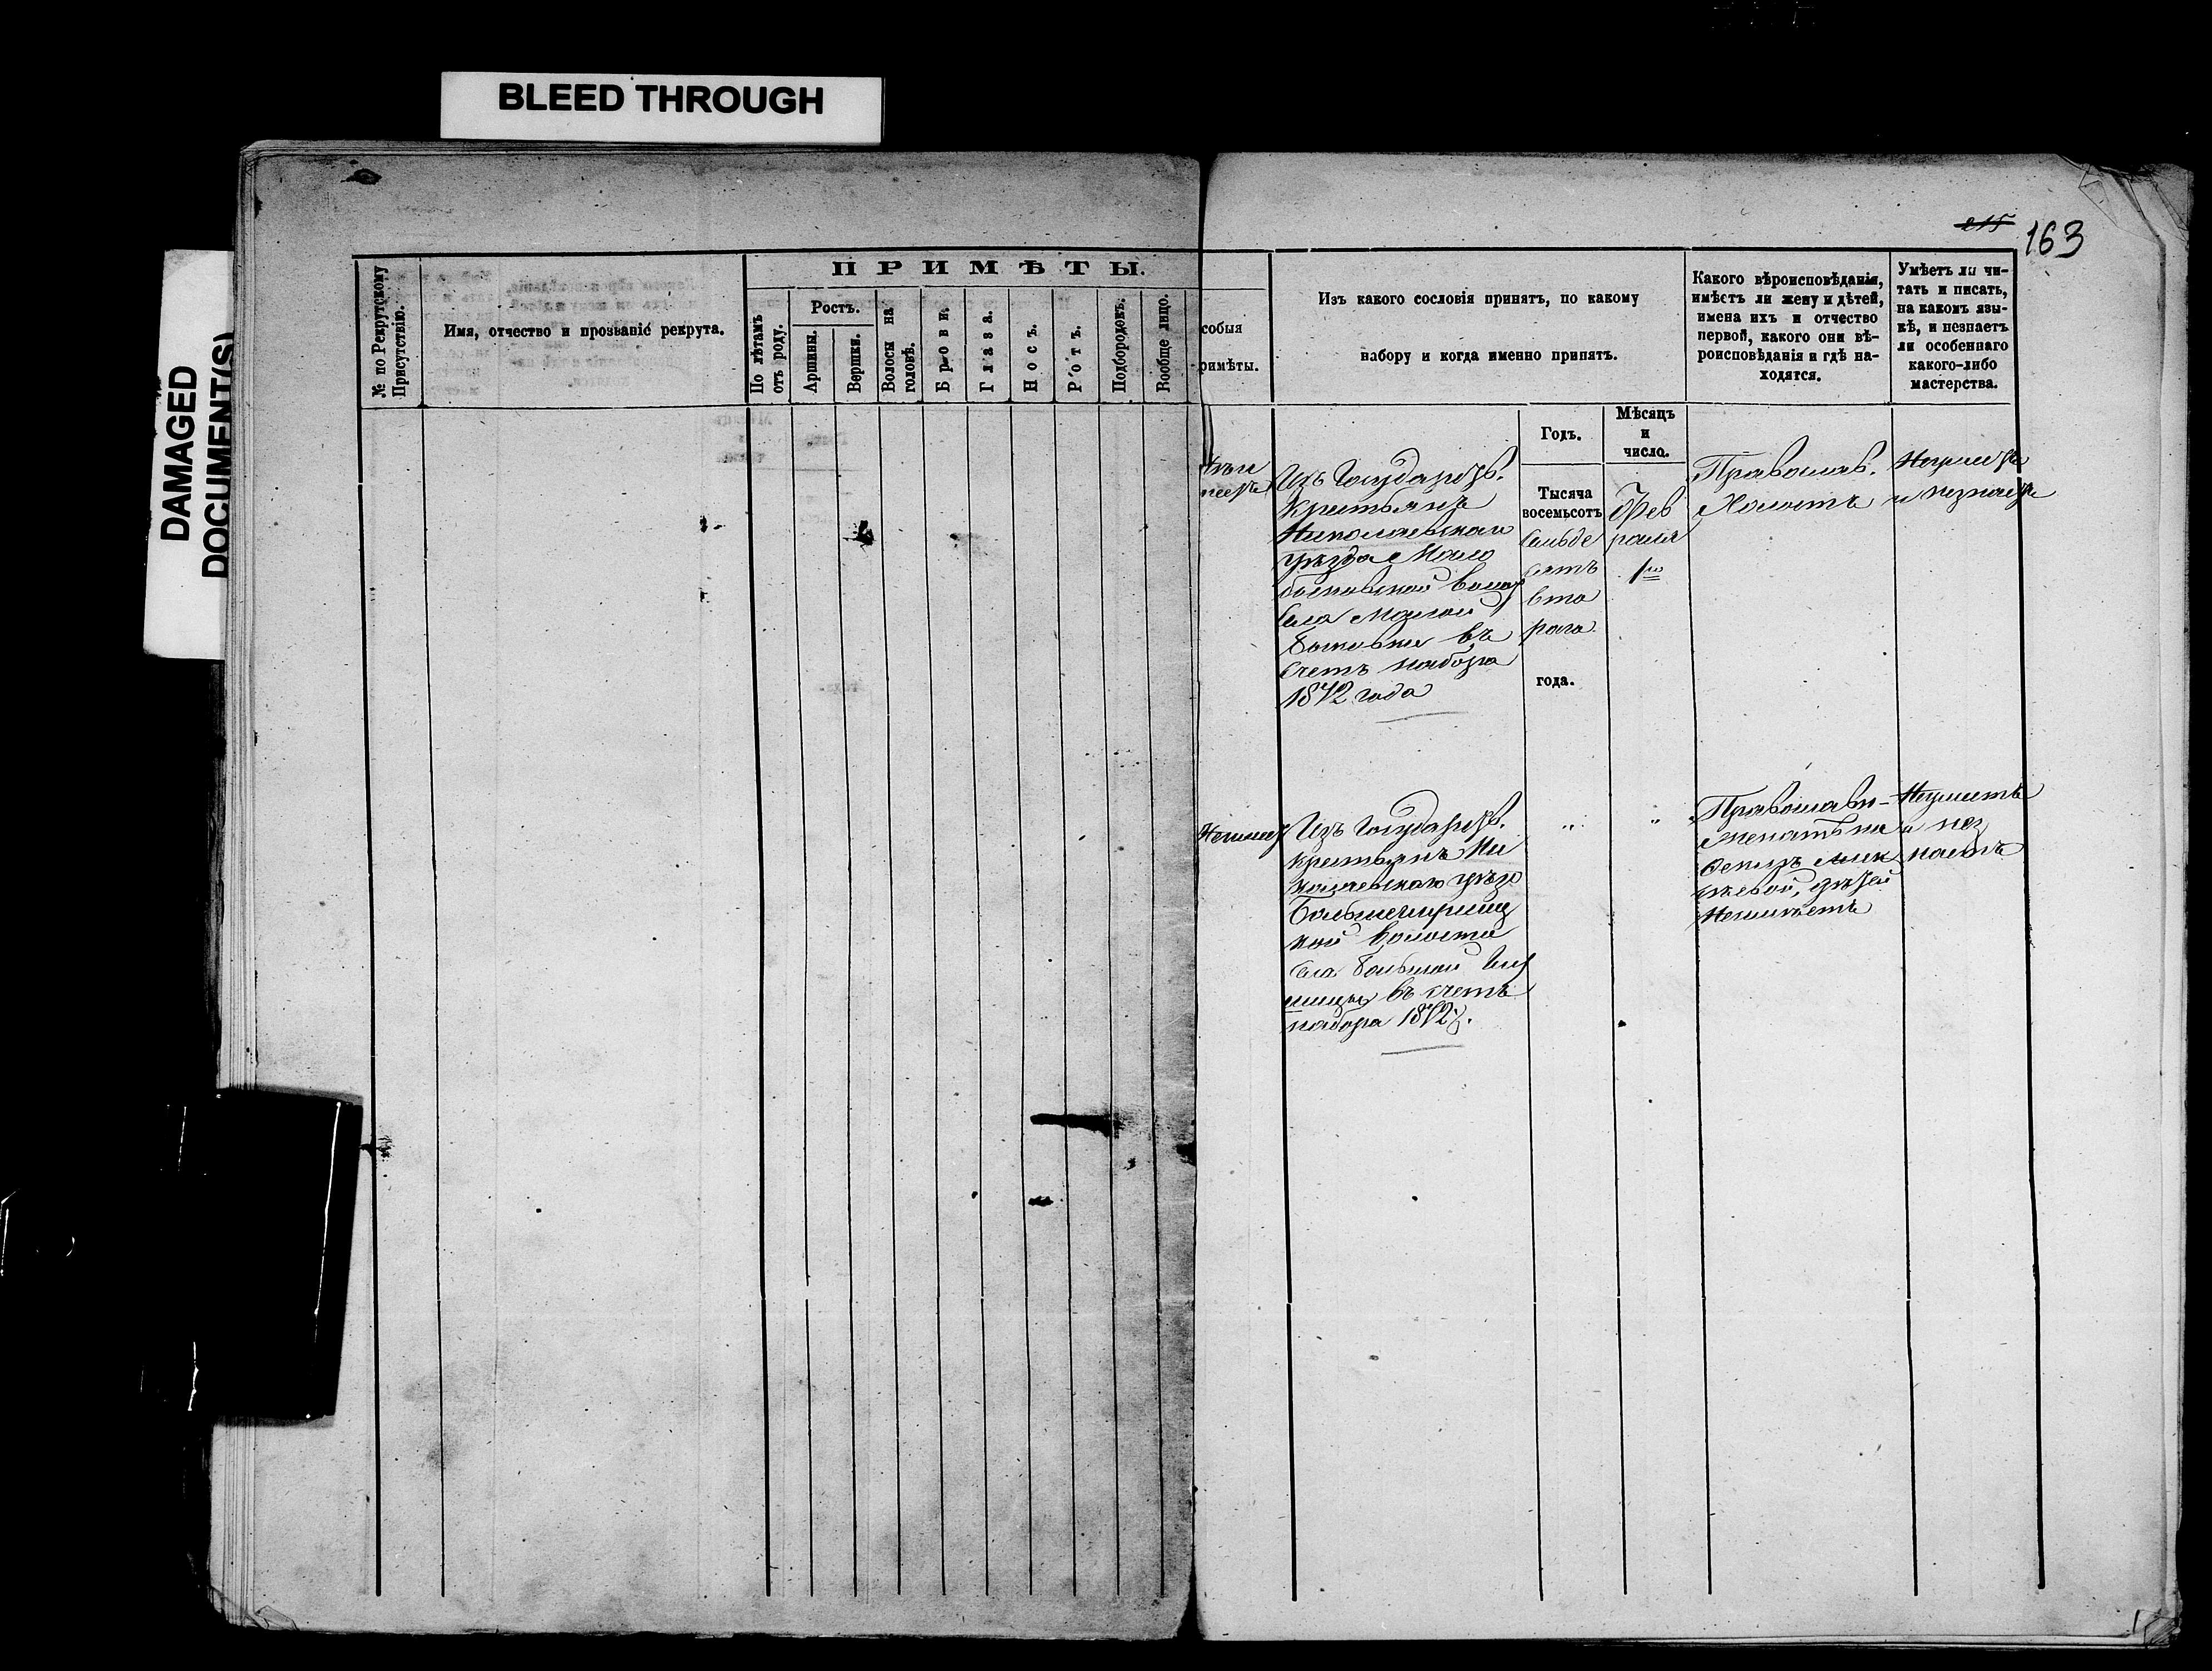 BLEED THROUGH
DAMAGED
DOCUMENT(S)
215
163
№ по Рекрутскому
Присутствію.
Имя, отчество и прозваніе рекрута.
ПРИМѢТЫ.
По лѣтамъ
отъ роду.
Ростъ.
Аршины.
Вершки.
Волосы на
головѣ.
Брови.
Глаза.
Носъ.
Ротъ.
Подбородокъ.
Вообще лицо.
собыя
римѣты.
Изъ какого сословія принятъ, по какому
набору и когда именно принятъ.
Какого вѣроисповѣданія,
имѣетъ ли жену и дѣтей,
имена ихъ и отчество
первой, какого они вѣ-
роисповѣданія и гдѣ на-
ходятся.
Умѣетъ ли чи-
тать и писать,
на какомъ язы-
кѣ, и незнаетъ
ли особеннаго
какого-либо
мастерства.
Годъ.
Мѣсяцъ
и
число.
Изъ Государств.
крестьянъ
Николаевскаго
уѣзда Мало
быковской волос
села Малой
Быковки въ
счетъ набора
1872 года
Тысяча
восемьсотъ
семьде
сятъ
вто
рага
года.
Фев
раля
1го
Православ.
Холостъ
Неумѣетъ
и незнаетъ
Изъ Государств.
крестьянъ Ни
колаевскаго уѣзд
кой волости
села Большой
въ счетъ
набора 1872 г.
"
"
Православн-
Женатъ на
дѣтей
Неимѣетъ
Неумѣетъ
и нез
наетъ